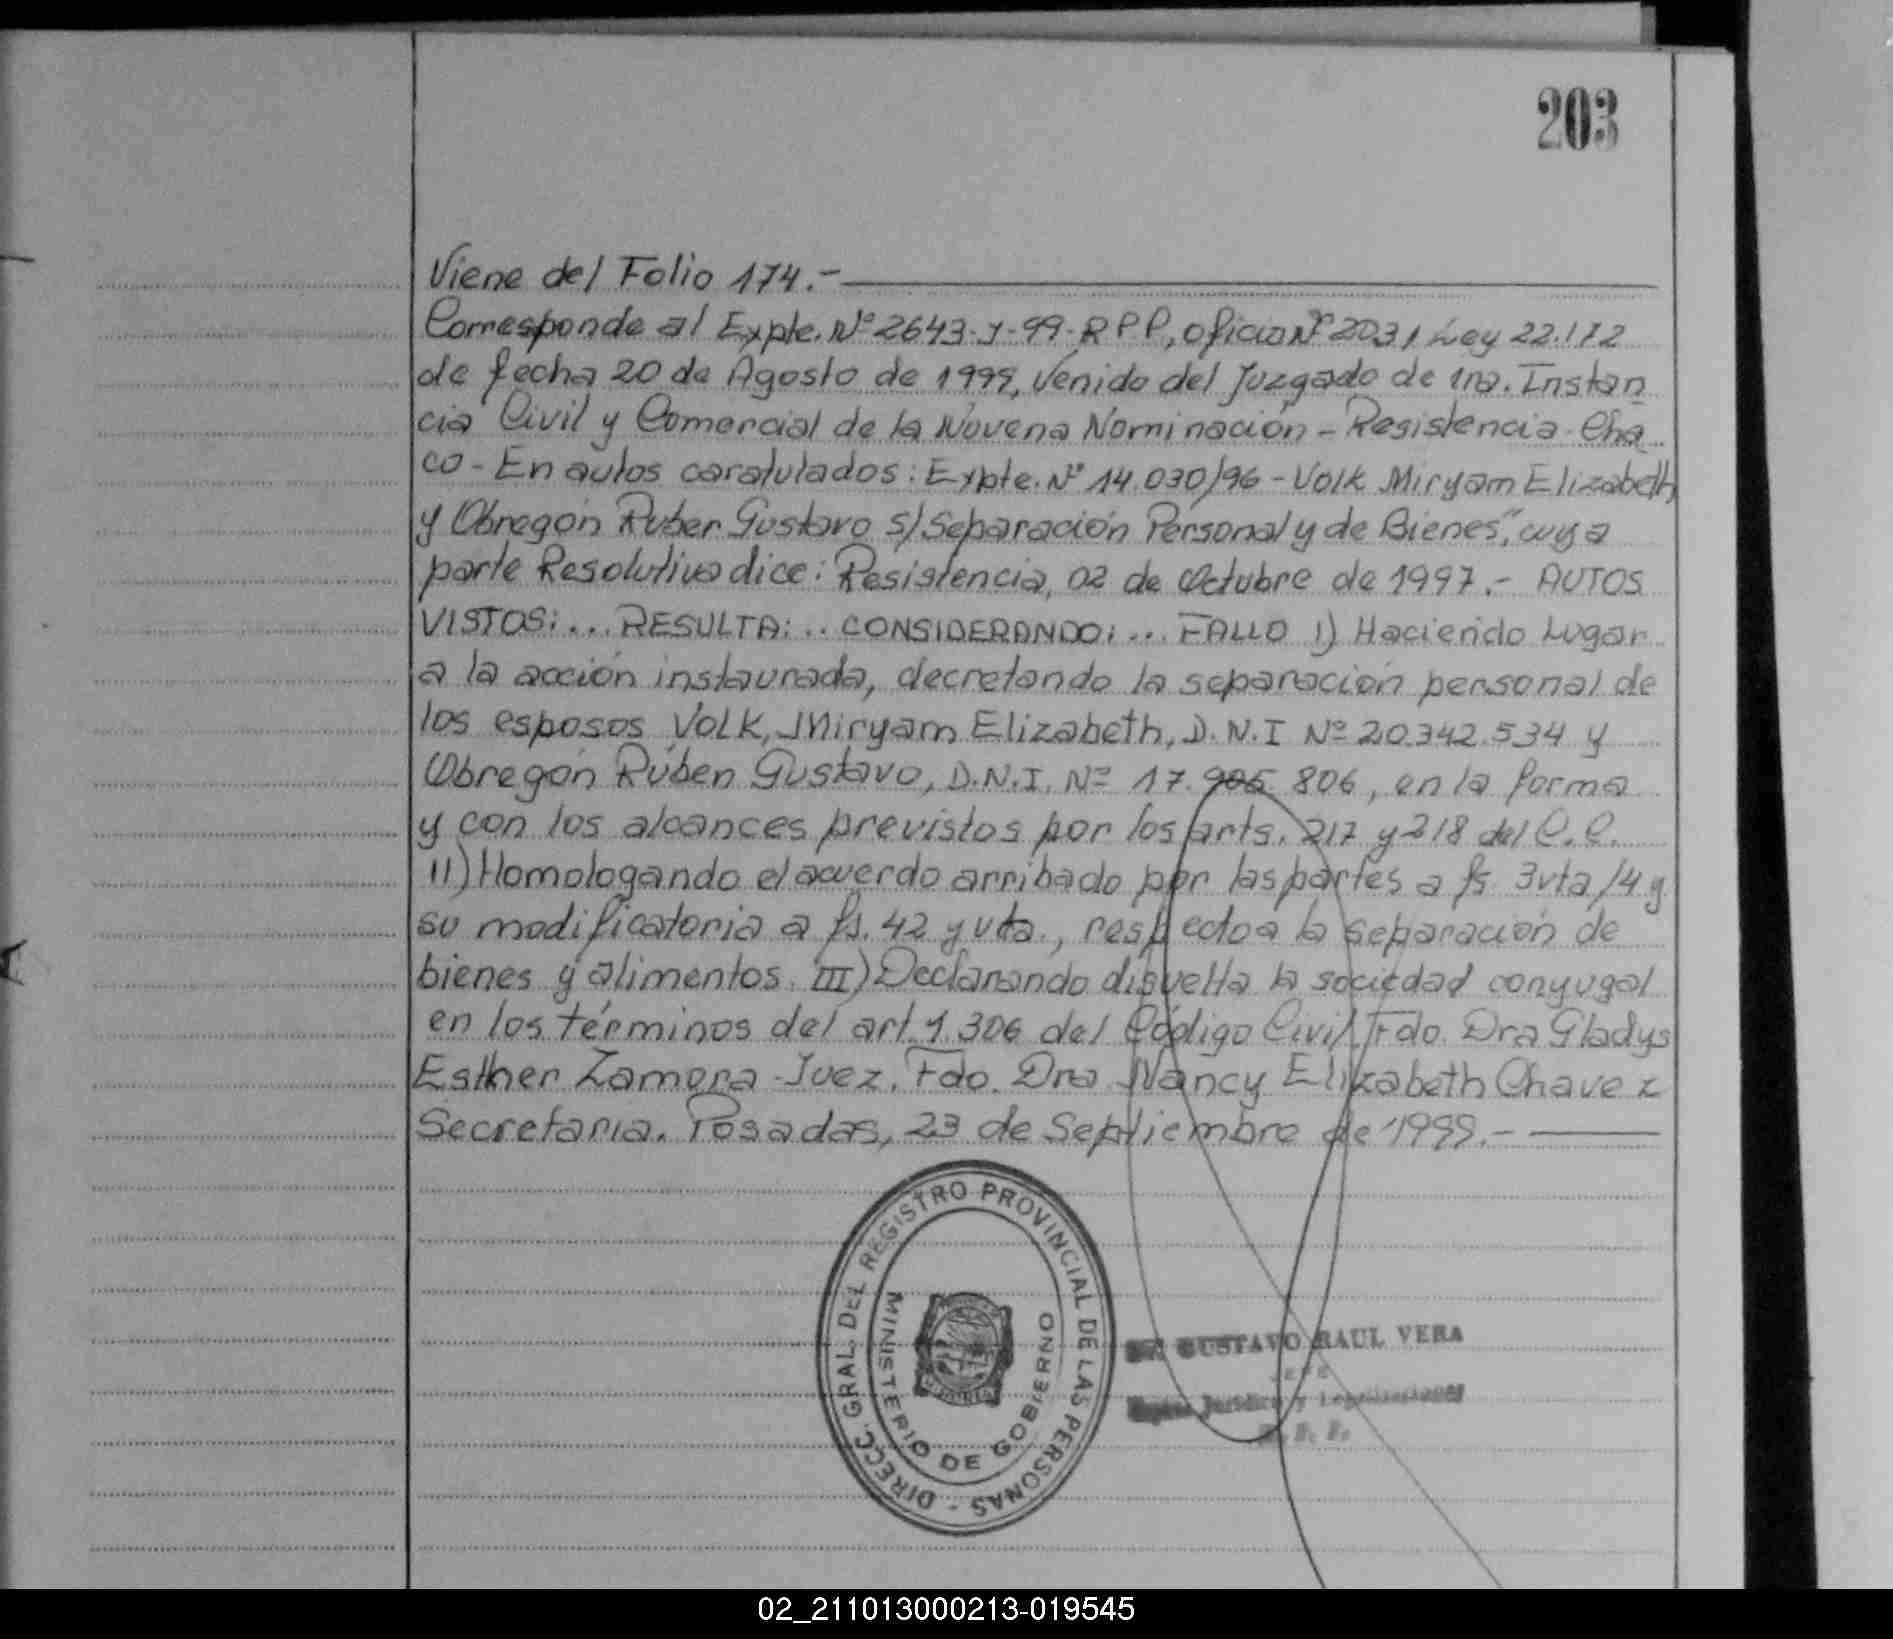 203
Viene del Folio 174.-
Corresponde al Expte. Nº 2643-J-99-RPP, oficio Nº 2031 Ley 22.172
de fecha 20 de Agosto de 1999, Venido del Juzgado de 1ra. Instan
cia Civil y Comercial de la Novena Nominación - Resistencia - Cha
co - En autos caratulados: Expte. Nº 14.030/96 - Volk Miryam Elizabeth
y Obregón Ruber Gustavo s/ Separación Personal y de Bienes", cuya
parte Resolutiva dice: Resistencia, 02 de Octubre de 1997.- AUTOS
VISTOS:... RESULTA:.. CONSIDERANDO:... FALLO I) Haciendo Lugar
a la acción instaurada, decretando la separación personal de
los esposos Volk, Miryam Elizabeth, D.N.I Nº 20.342.534 y
Obregón Rúben Gustavo, D.N.I. Nº 17.905 806, en la forma
y con los alcances previstos por los arts. 217 y 218 del C.C.
II) Homologando el acuerdo arribado por las partes a fs. 3vta/4 y
su modificatoria a fs. 42 y vta., respecto a la separación de
bienes y alimentos. III) Declarando disuelta la sociedad conyugal
en los términos del art. 1.306 del Código Civil. Fdo. Dra Gladys
Esther Zamora - Juez. Fdo. Dra Nancy Elizabeth Chavez
Secretaria. Posadas, 23 de Septiembre de 1999.-
DIRECC. GRAL. DEL REGISTRO PROVINCIAL DE LAS PERSONAS -
MINISTERIO DE GOBIERNO
GUSTAVO RAUL VERA
JEFE
Jurídico y Legalizaciones
02_211013000213-019545